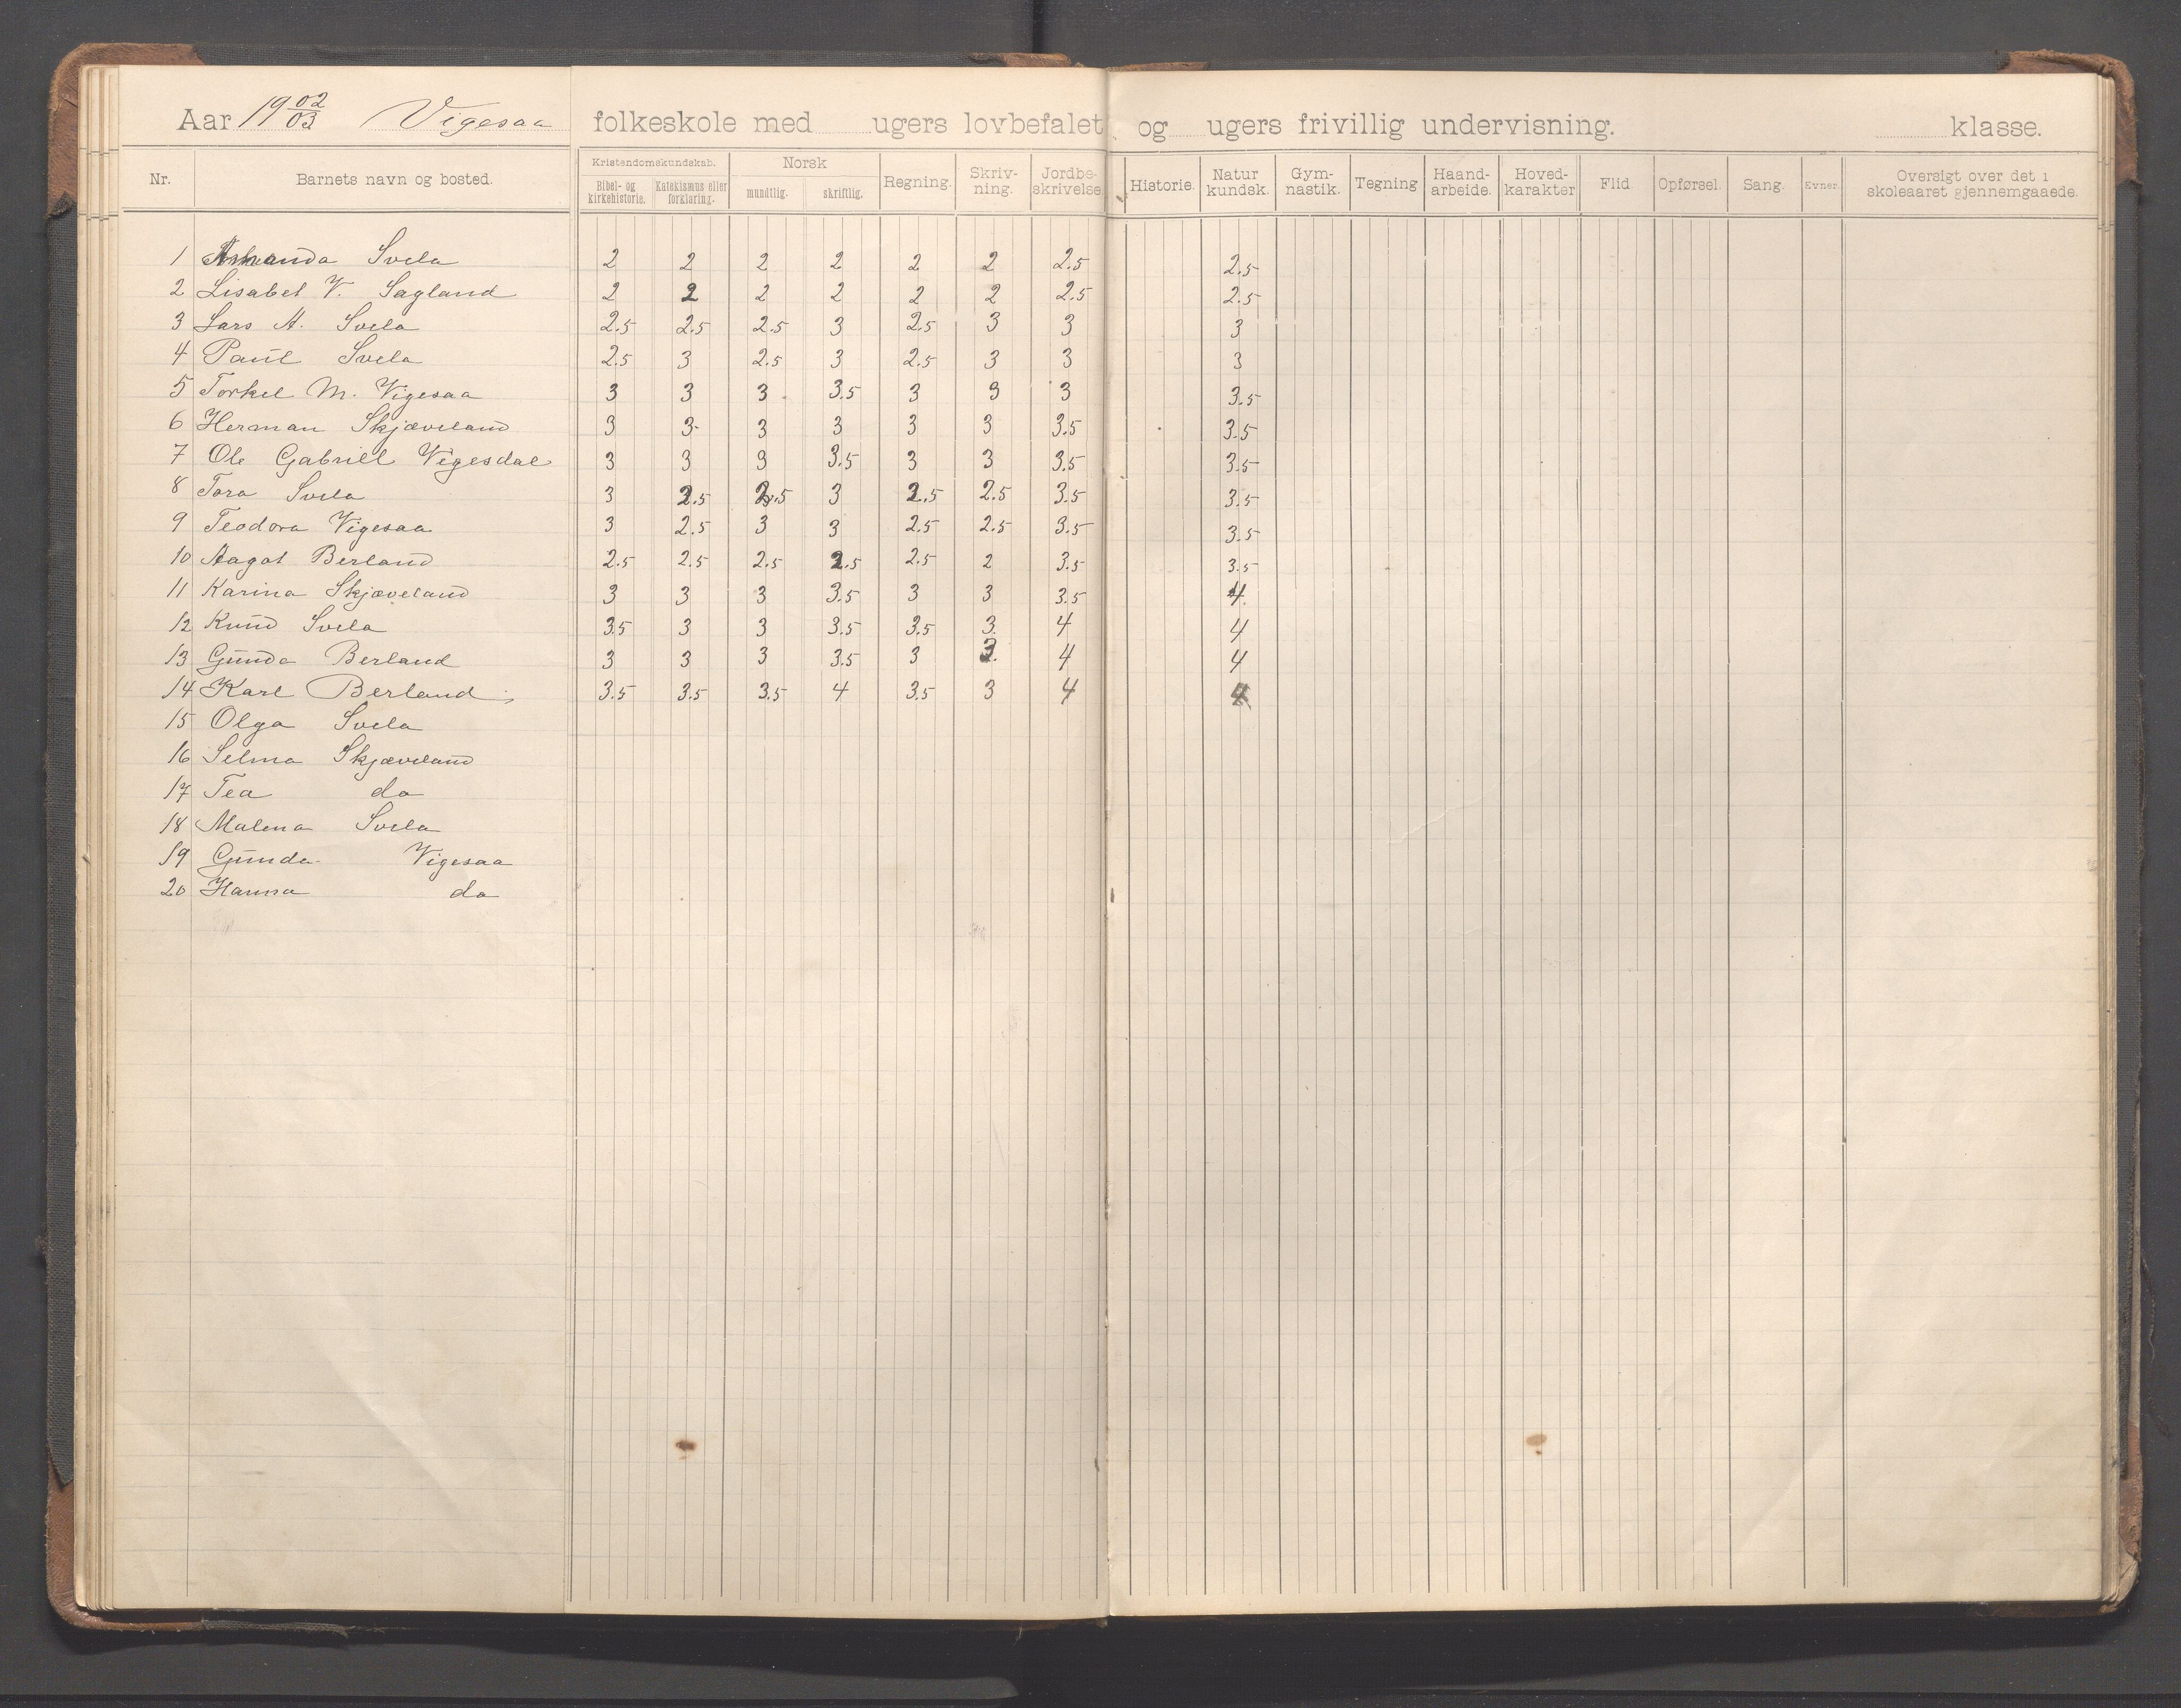 Aar 19 02/03 Vigesaa folkeskole med ugers lovbefalet og ugers frivillig undervisning. klasse.
Nr. Barnets navn og bosted. Kristendomskundskab. Bibel- og kirkehistorie. Katekismus eller forklaring. Norsk mundtlig. skriftlig. Regning. Skriv-ning. Jordbe-skrivelse. Historie. Natur kundsk. Gym-nastik. Tegning Haand-arbeide. Hoved-karakter Flid. Opførsel. Sang. Evner. Oversigt over det i skoleaaret gjennemgaaede.
1 Amanda Svela 2 2 2 2 2 2 2.5 2.5
2 Lisabet V. Sagland 2 2 2 2 2 2 2.5 2.5
3 Lars A. Svela 2.5 2.5 2.5 3 2.5 3 3 3
4 Paul Svela 2.5 3 2.5 3 2.5 3 3 3
5 Torkel M. Vigesaa 3 3 3 3.5 3 3 3 3.5
6 Herman Skjæveland 3 3 3 3 3 3 3.5 3.5
7 Ole Gabriel Vigesdal 3 3 3 3.5 3 3 3.5 3.5
8 Tora Svela 3 2.5 2.5 3 2.5 2.5 3.5 3.5
9 Teodora Vigesaa 3 2.5 3 3 2.5 2.5 3.5 3.5
10 Aagot Berland 2.5 2.5 2.5 2.5 2.5 2 3.5 3.5
11 Karina Skjæveland 3 3 3 3.5 3 3 3.5 4
12 Knud Svela 3.5 3 3 3.5 3.5 3 4 4
13 Gunda Berland 3 3 3 3.5 3 3 4 4
14 Karl Berland 3.5 3.5 3.5 4 3.5 3 4 4
15 Olga Svela
16 Selma Skjæveland
17 Tea do
18 Malena Svela
19 Gunda Vigesaa
20 Hanna do